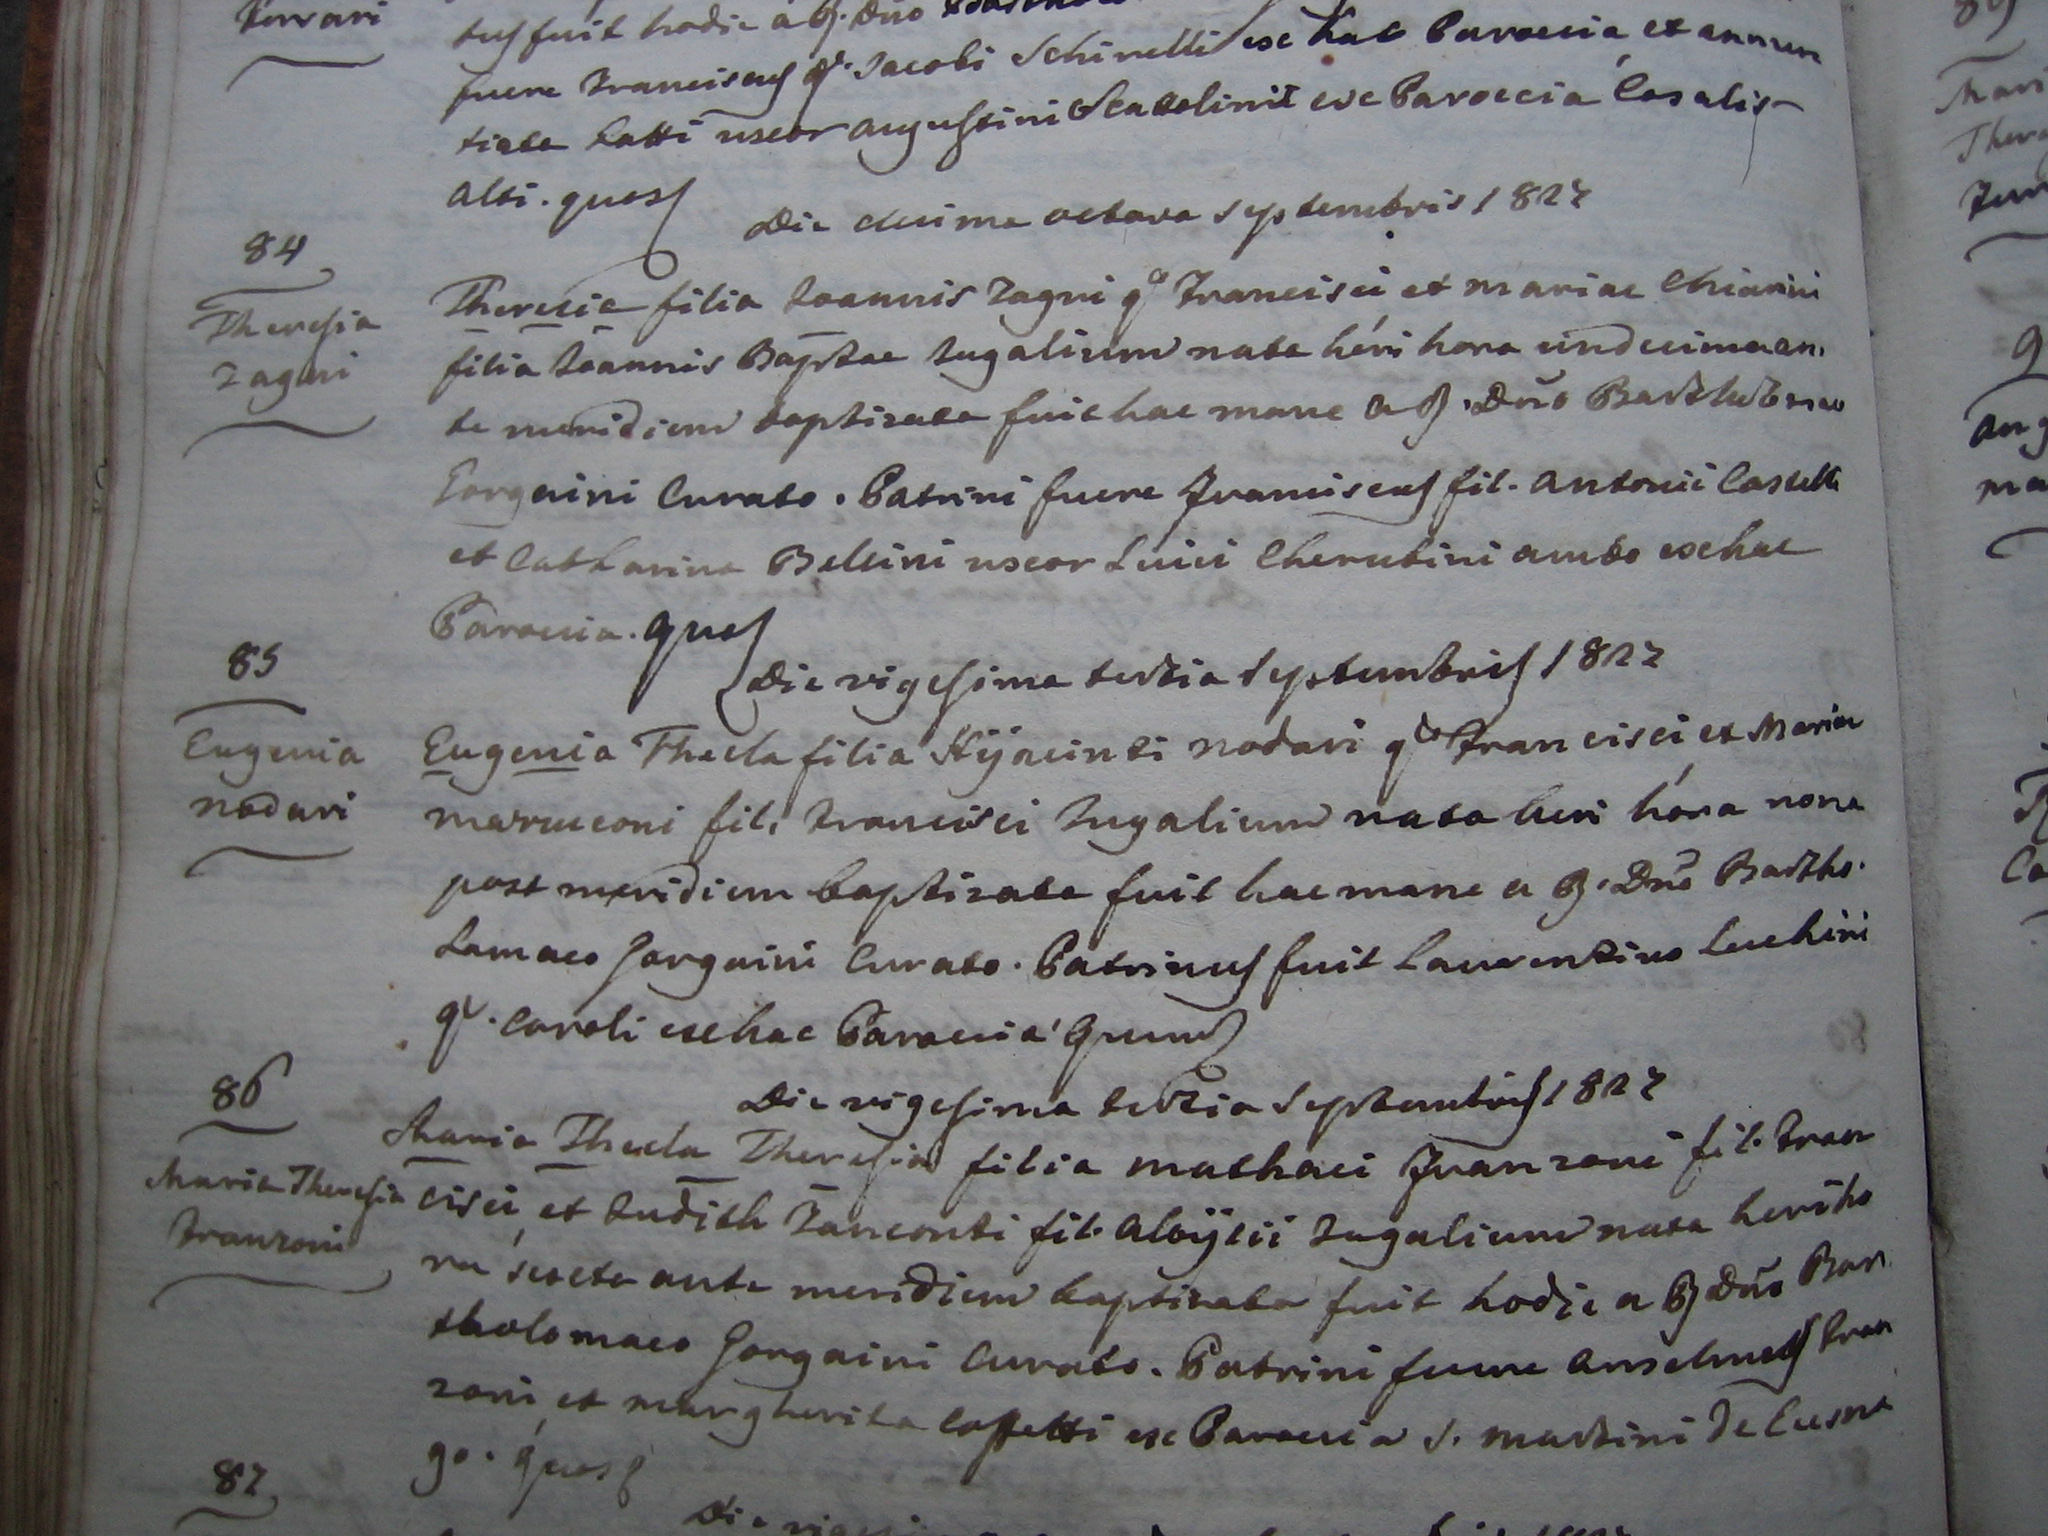 Ferrari
tus fuit hodie a P. Dño
fuere Franciscus qm. Jacobi Schinelli ex hac Paroecia et annun
tiata Gatti uxor Augustini ex Paroecia Casalis
Alti. quos
84
Theresia
Zagni
Die decima octava Septembris 1827
Theresia filia Joannis Zagni qm Francisci et Mariae Chiarini
filia Joannis Baptae Jugalium nata héri hora undecima an,
te meridiem baptizata fuit hac mane a P. Dño Bartholomeo
Gorgaini Curato. Patrini fuere Franciscus fil. Antonii Cassetti
et Catharina Bellini uxor Luici Cherubini ambo ex hac
Paroecia. quos
85
Eugenia
Nodari
Die vigesima tertia Septembris 1827
Eugenia Thecla filia Hÿacinti Nodari qm Francisci et Mariae
fil. Francisci Jugalium nata heri hóra nona
post meridiem baptizata fuit hac mane a P. Dño Bartho.
lamaeo Gorgaini Curato. Patrinus fuit Laurentius Luchini
qm. Caroli ex hac Paroecia quem
86
Maria Theresia
Franzoni
Die vigesima tertia Septembris 1827
Maria Thecla Theresia filia Mathaei Franzoni fil. Fran
cisci et Judith Zanconti fil. Aloÿsii Jugalium nata heri ho
ra sexta ante meridiem baptizata fuit hodie a P. Dño Bar
tholomaeo Gorgaini Curato. Patrini fuere Anselmus Fran
zoni et Margherita Cassetti ex Paroecia S. Martini de Gusna
go. quos
87
Die